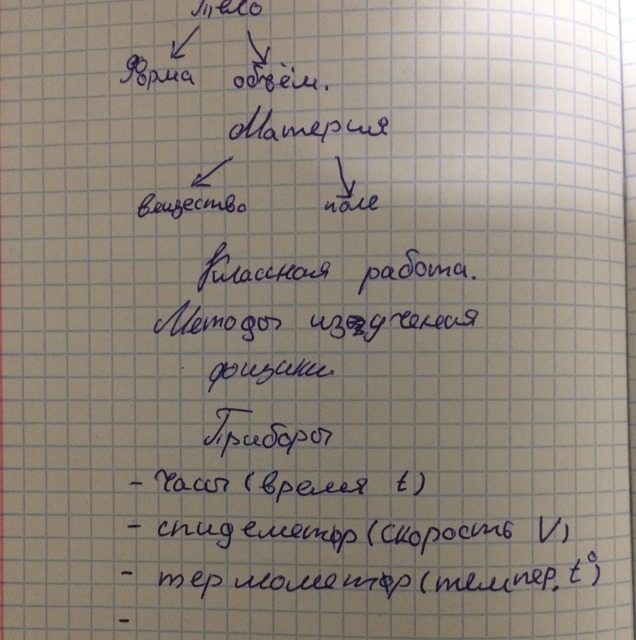 Тело
Форма объём.
Материя
вещество поле
Классная работа.
Методы изучения
физики.
Приборы
- часы (время t)
- спидеметр (скорость V)
- термометр (темпер. t°)
-